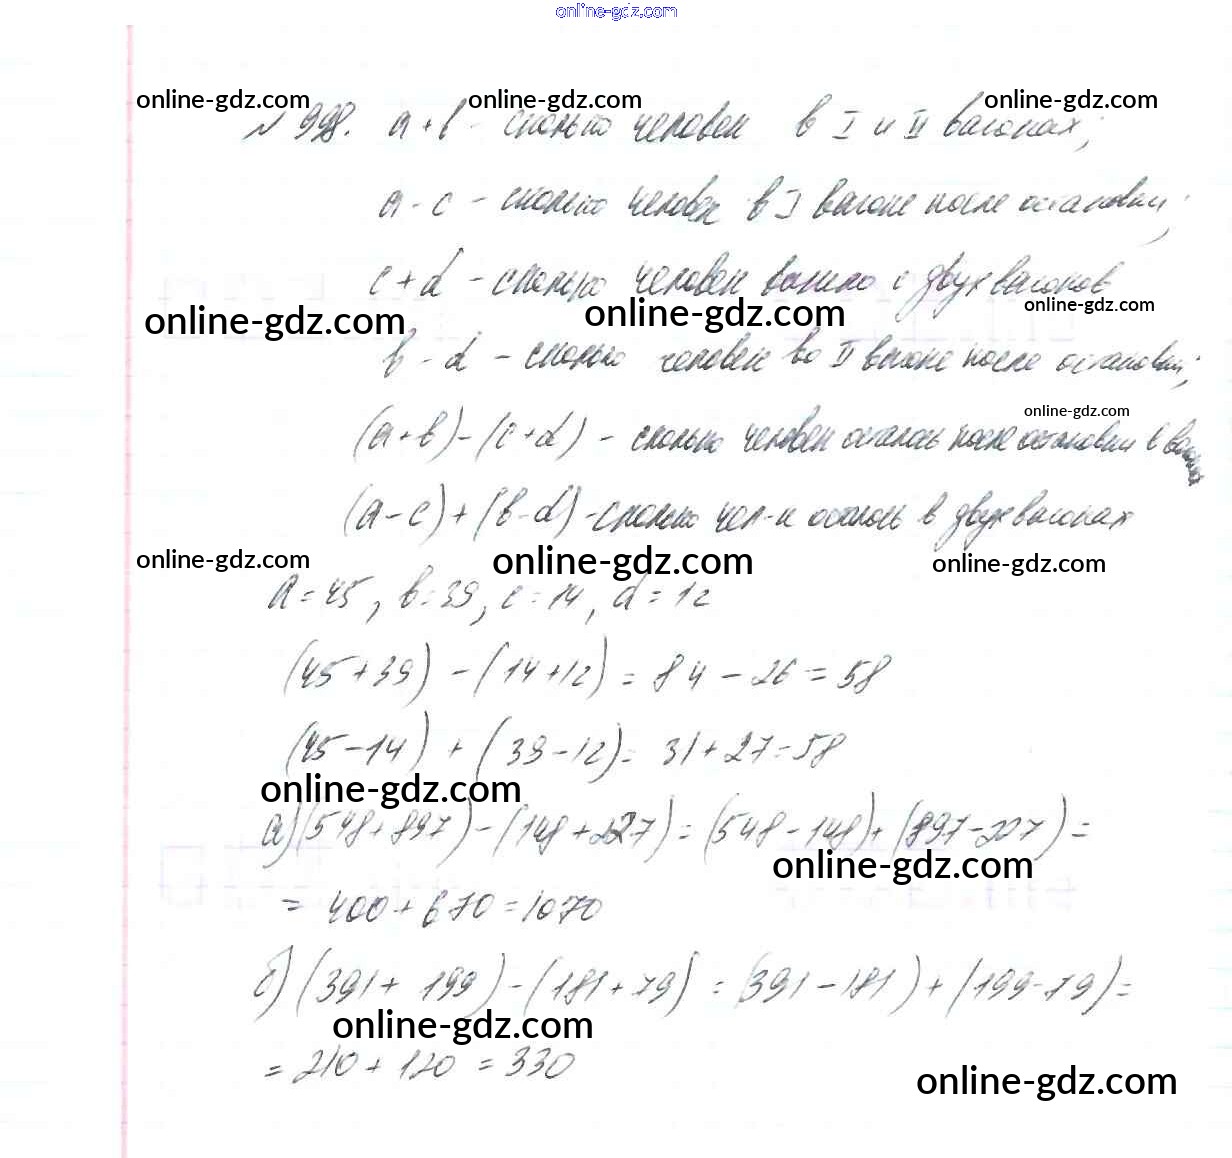 online-gdz.com
online-gdz.com online-gdz.com online-gdz.com
№ 998. a + b - сколько человек в I и II вагонах;
a - c - сколько человек в I вагоне после остановки;
c + d - сколько человек вышло с двух вагонов
online-gdz.com online-gdz.com online-gdz.com
b - d - сколько человек во II вагоне после остановки;
online-gdz.com
(a + b) - (c + d) - сколько человек осталось после остановки в
(a - c) + (b - d) - сколько чел-к осталось в двух вагонах
online-gdz.com online-gdz.com online-gdz.com
a = 45, b = 39, c = 14, d = 12
(45 + 39) - (14 + 12) = 84 - 26 = 58
(45 - 14) + (39 - 12) = 31 + 27 = 58
online-gdz.com
а) (548 + 897) - (148 + 227) = (548 - 148) + (897 - 227) =
online-gdz.com
= 400 + 670 = 1070
б) (391 + 199) - (181 + 79) = (391 - 181) + (199 - 79) =
online-gdz.com
= 210 + 120 = 330
online-gdz.com